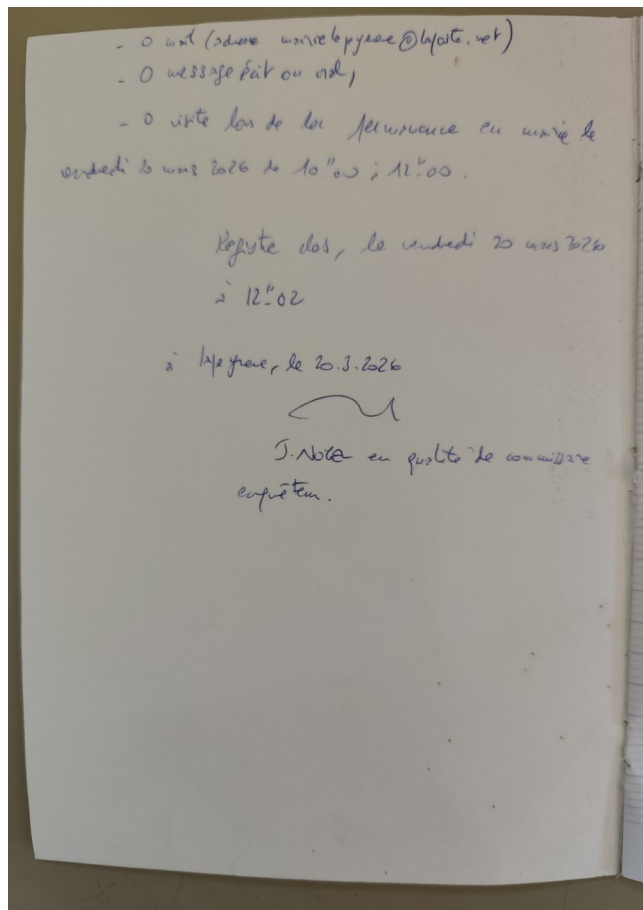 - 0 mail (adresse mairielapeyrere@laposte.net)
- 0 message écrit ou oral,
- 0 visite lors de la permanence en mairie le
vendredi 20 mars 2026 de 10h00 à 12h00.
Registre clos, le vendredi 20 mars 2026
à 12h02
à Lapeyrere, le 20.3.2026
en qualité de commissaire
enquêteur.